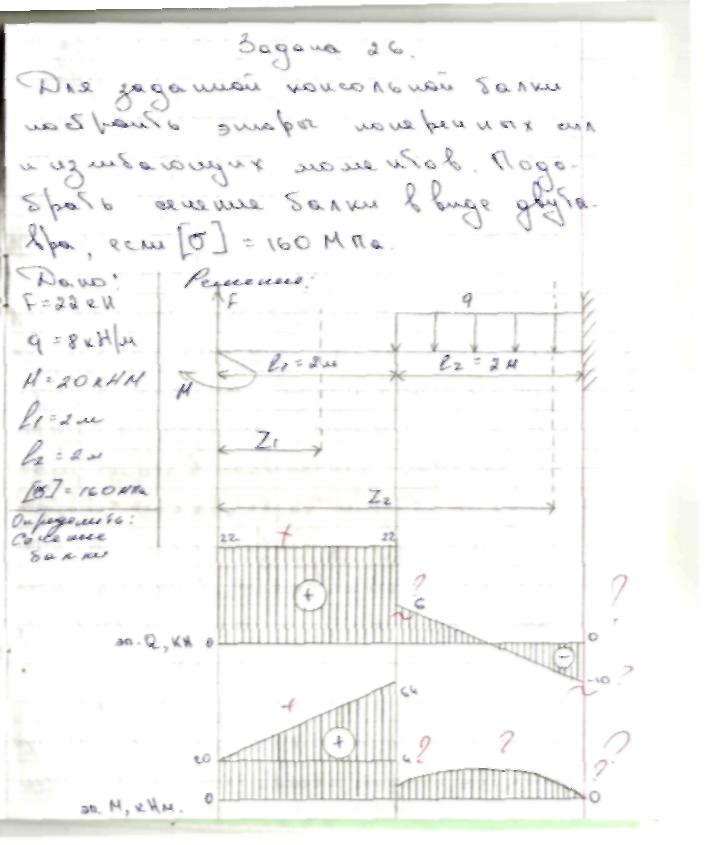 Задача 26.
Для заданной консольной балки
построить эпюры поперечных сил
и изгибающих моментов. Подо-
брать сечение балки в виде двута-
вра, если [σ] = 160 МПа.
Дано:
F = 22 кН
q = 8 кН/м
M = 20 кНм
l1 = 2м
l2 = 2м
[σ] = 160 МПа
Определить:
Сечение
балки
Решение:
F
q
M
l1 = 2м
l2 = 2м
Z1
Z2
22 + 22
+
? 6
?
эп. Q, кН 0
0
−
-10 ?
+
64
20
+
? ? ?
?
эп. M, кНм. 0
0